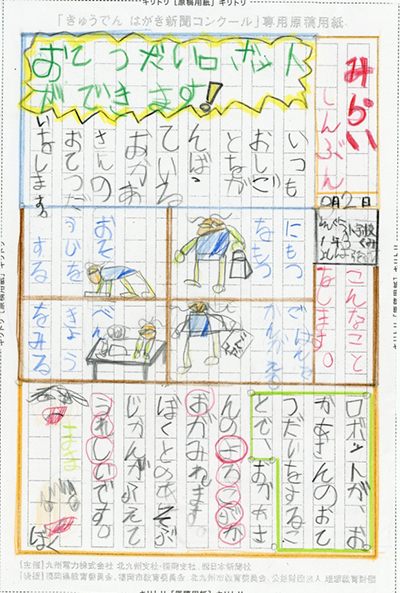 キリトリ [原稿用紙] キリトリ
「きゅうでん はがき新聞コンクール」専用原稿用紙
みらい
しんぶん
2日
小学校
1年3くみ
おてつだいロボット
ができます!
いつも
おしご
となが
んばっ
ている
おかあ
さんの
おてつだ
いをします。
こんなこと
をします。
にもつ
をもつ
ごはんを
かんがえる
おそ
うじを
する
べん
きょう
をみる
ロボットが、お
かあさんのおて
つだいをするこ
とで、おかあさ
んのよろこぶか
おがみれます。
ぼくとのあそぶ
じかんがふえて
うれしいです。
まま
ぼく
[主催]九州電力株式会社 北九州支社・福岡支社、西日本新聞社
[後援]福岡県教育委員会、福岡市教育委員会、北九州市教育委員会、公益財団法人 理想教育財団